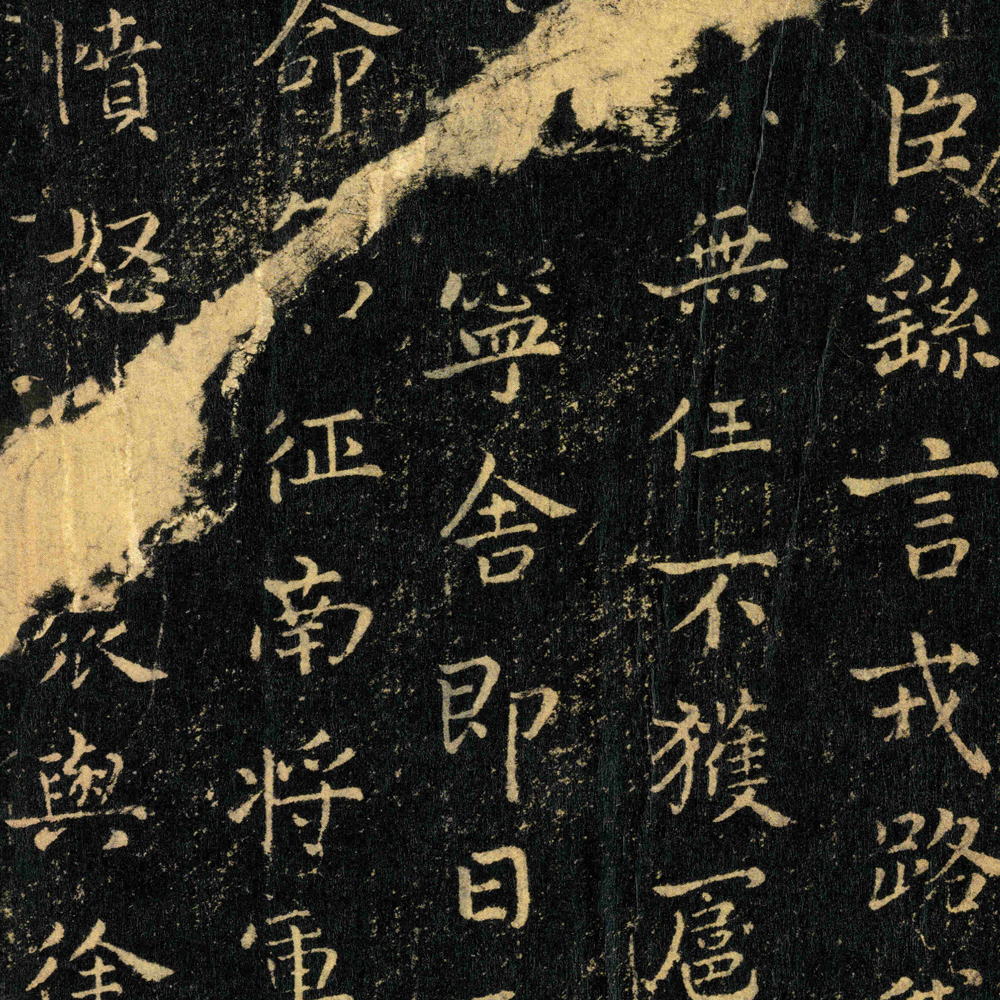 臣繇言戎路
無任不獲扈
寧舍即日
命征南将軍
憤怒衆與徐